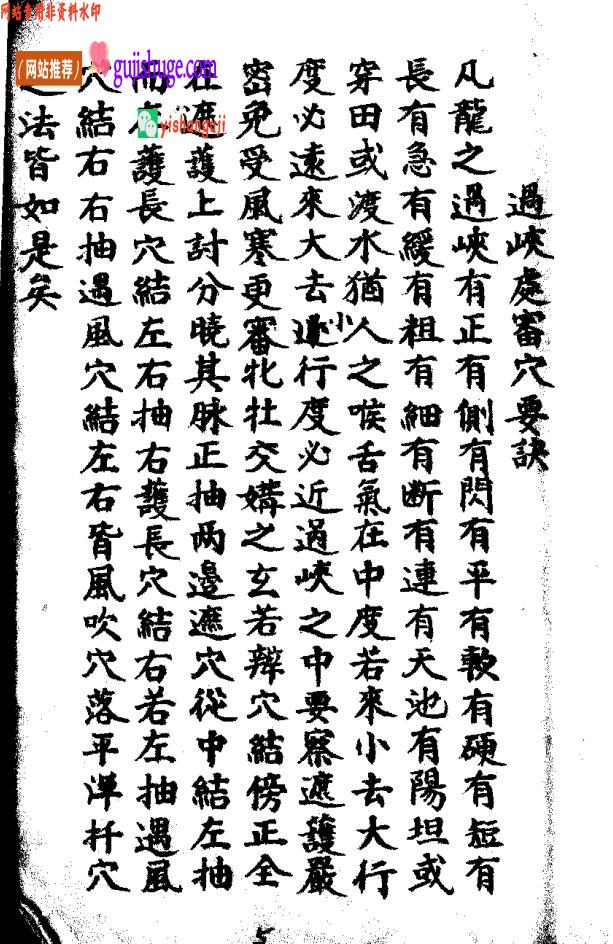 网站专用非资料水印
(网站推荐)
gujishuge.com
yishanguji
過峽處審穴要訣
凡龍之過峽有正有側有閃有平有軟有硬有短有
長有急有緩有粗有細有断有連有天池有陽坦或
穿田或渡水猶人之喉舌氣在中度若來小去大行
度必遠來大去小行度必近過峽之中要察遮護嚴
密免受風寒更審牝牡交媾之玄若辨穴結傍正全
在遮護上討分曉其脉正抽两邊遮穴從中結左抽
而護長穴結左右抽右護長穴結右若左抽遇風
穴結右右抽遇風穴結左右皆風吹穴落平洋扦穴
之法皆如是矣
5